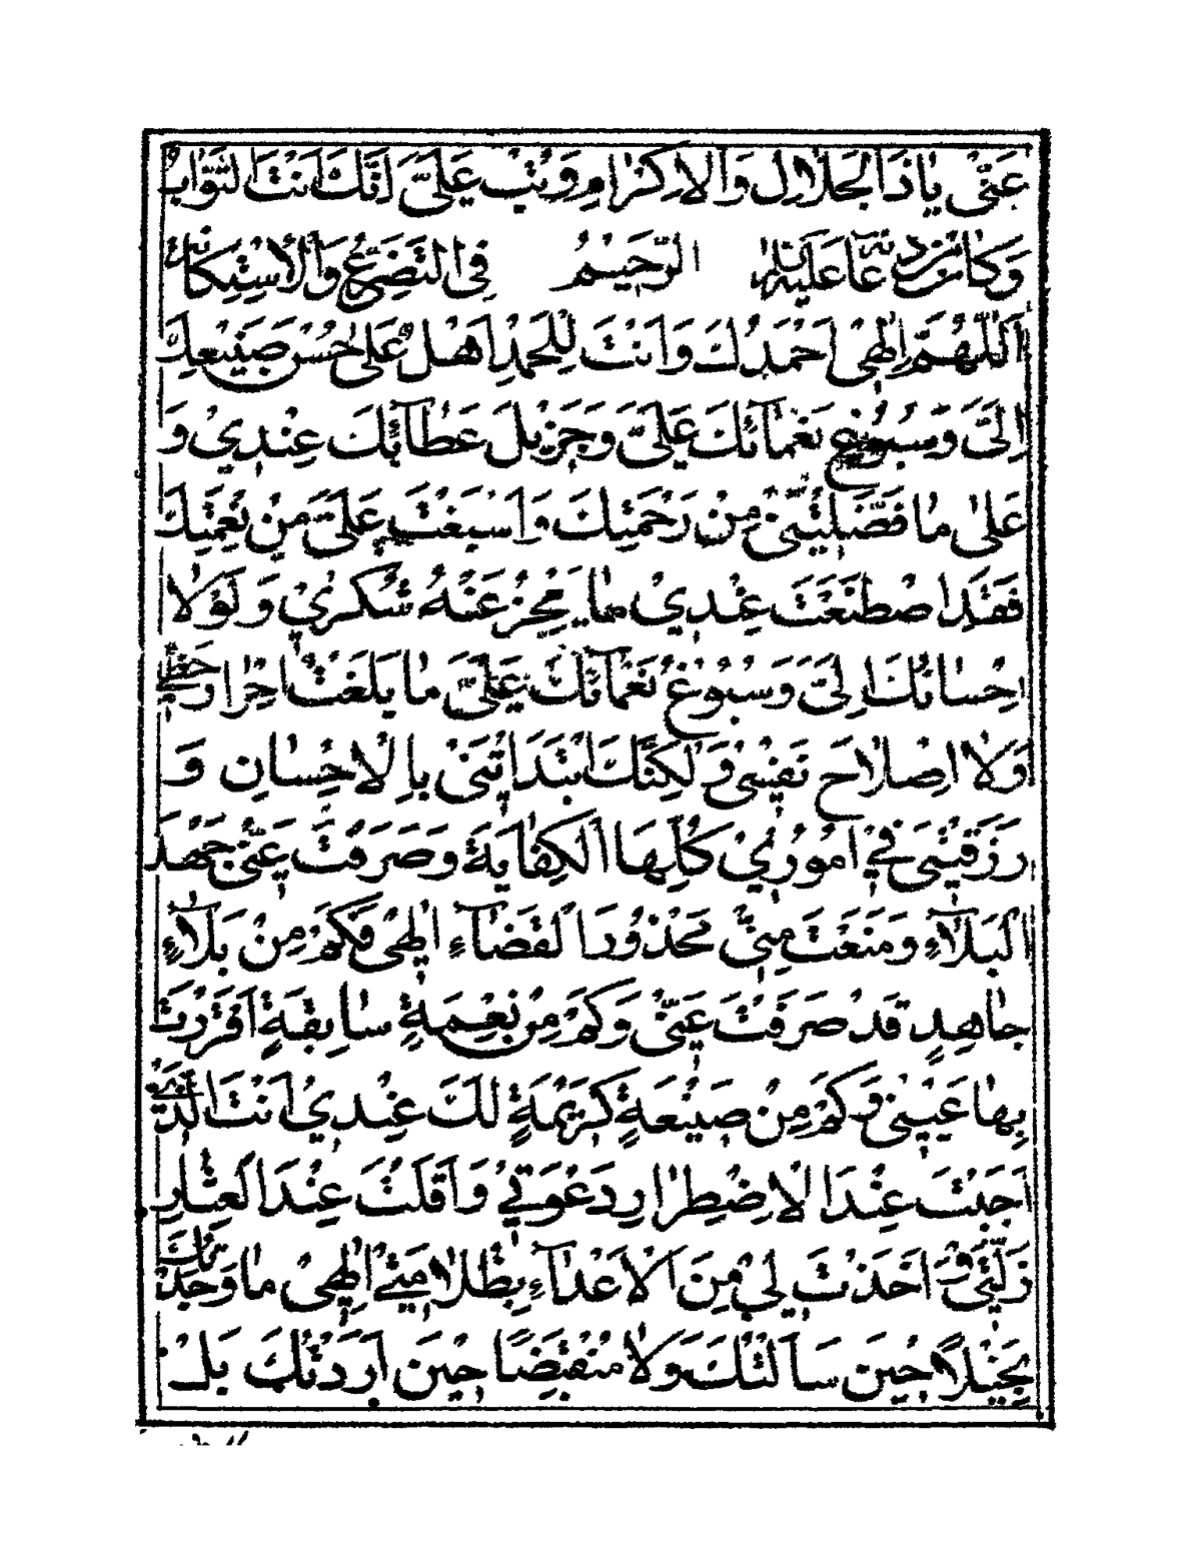 عَنّي يا ذَا الْجَلالِ وَالْاِكْرامِ وَتُبْ عَلَىَّ اِنَّكَ اَنْتَ التَّوّابُ
وَكانَ مِنْ دُعائِهِ عَلَيْهِ السَّلامُ الرَّحيمُ فِي التَّضَرُّعِ وَالْاِسْتِكانَةِ
اَللّهُمَّ اِلهي اَحْمَدُكَ وَاَنْتَ لِلْحَمْدِ اَهْلٌ عَلى حُسْنِ صَنيعِكَ
اِلَىَّ وَسُبُوغِ نَعْمآئِكَ عَلَىَّ وَجَزيلِ عَطآئِكَ عِنْدي وَ
عَلى ما فَضَّلْتَني مِنْ رَحْمَتِكَ وَاَسْبَغْتَ عَلَىَّ مِنْ نِعْمَتِكَ
فَقَدِ اصْطَنَعْتَ عِنْدي ما يَعْجِزُ عَنْهُ شُكْري وَلَوْلا
اِحْسانُكَ اِلَىَّ وَسُبُوغُ نَعْمآئِكَ عَلَىَّ ما بَلَغْتُ اِحْرازَ حَظّي
وَلا اِصْلاحَ نَفْسي وَلكِنَّكَ ابْتَدَاْتَني بِالْاِحْسانِ وَ
رَزَقْتَني في اُمُوري كُلِّهَا الْكِفايَةَ وَصَرَفْتَ عَنّي جَهْدَ
الْبَلآءِ وَمَنَعْتَ مِنّي مَحْذُورَ الْقَضآءِ اِلهي فَكَمْ مِنْ بَلآءٍ
جاهِدٍ قَدْ صَرَفْتَ عَنّي وَكَمْ مِنْ نِعْمَةٍ سابِقَةٍ اَقْرَرْتَ
بِها عَيْني وَكَمْ مِنْ صَنيعَةٍ كَريمَةٍ لَكَ عِنْدي اَنْتَ الَّذي
اَجَبْتَ عِنْدَ الْاِضْطِرارِ دَعْوَتي وَاَقَلْتَ عِنْدَ الْعِثارِ
زَلَّتي وَ اَخَذْتَ لي مِنَ الْاَعْدآءِ بِظُلامَتي اِلهي ما وَجَدْتُكَ
بَخيلاً حينَ سَاَلْتُكَ وَلا مُنْقَبِضًا حينَ اَرَدْتُكَ بَلْ